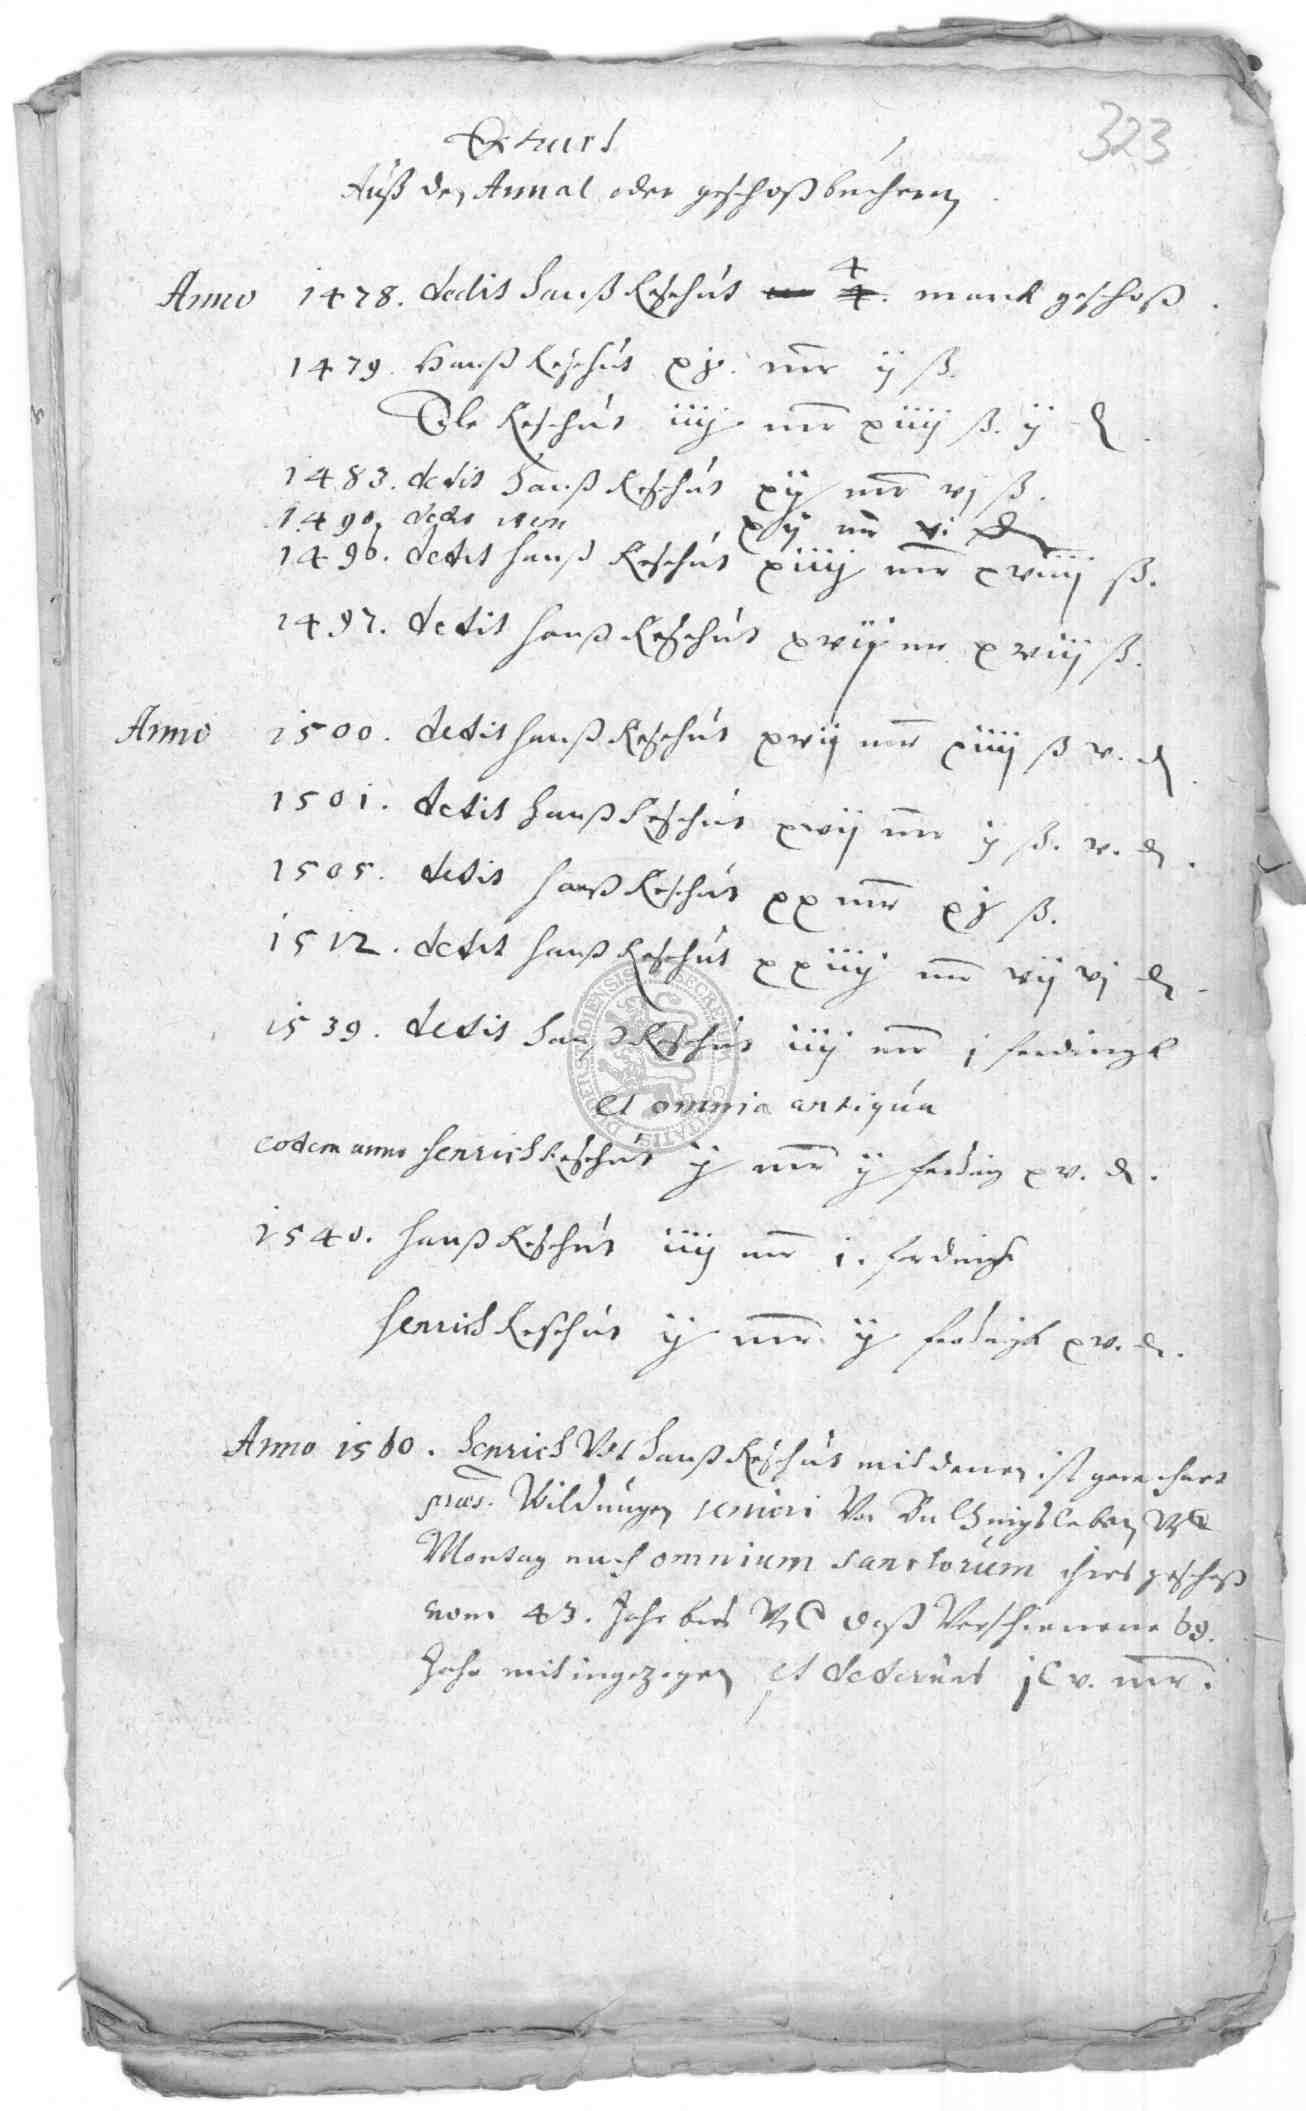 323
Extract
Auß den Annal oder geschoßbüchern
Anno 1478. dedit Hanß Keschut 4 marck geschoß.
1479. Hanß Keschut xj. mr ij ß.
Tile Keschut iiij mr xiiij ß. ij d
1483. dedit Hanß Keschut xij mr vj ß.
1490. dedit item xij mr vi d
1496. dedit Hanß Keschut xiiij mr xviiij ß.
1497. dedit Hanß Keschut xvij mr xviij ß.
Anno 1500. dedit Hanß Keschut xvij mr xiiij ß v. d
1501. dedit Hanß Keschut xvij mr ij ß. v. d.
1505. dedit Hanß Keschut xx mr xj ß.
1512. dedit Hanß Keschut xxiiij mr vij vj d
1539. dedit Hanß Keschut iiij mr j ferdingk
et omnia antiqua
eodem anno Henrich Keschut ij mr ij ferding xv. d.
1540. Hanß Keschut iiij mr i. ferdingk
Henrich Keschut ij mr ij ferdingk xv. d.
Anno 1560. Henrich Vnd Hanß Keschut mit denen ist gerechnet
Wildungen seniori Vff
Montag nach omnium sanctorum ihres geschoß
vom 43. Jahr biß Vff deß Verschienene 69.
Jahr mit ingezogen et dederunt jC v. mr.